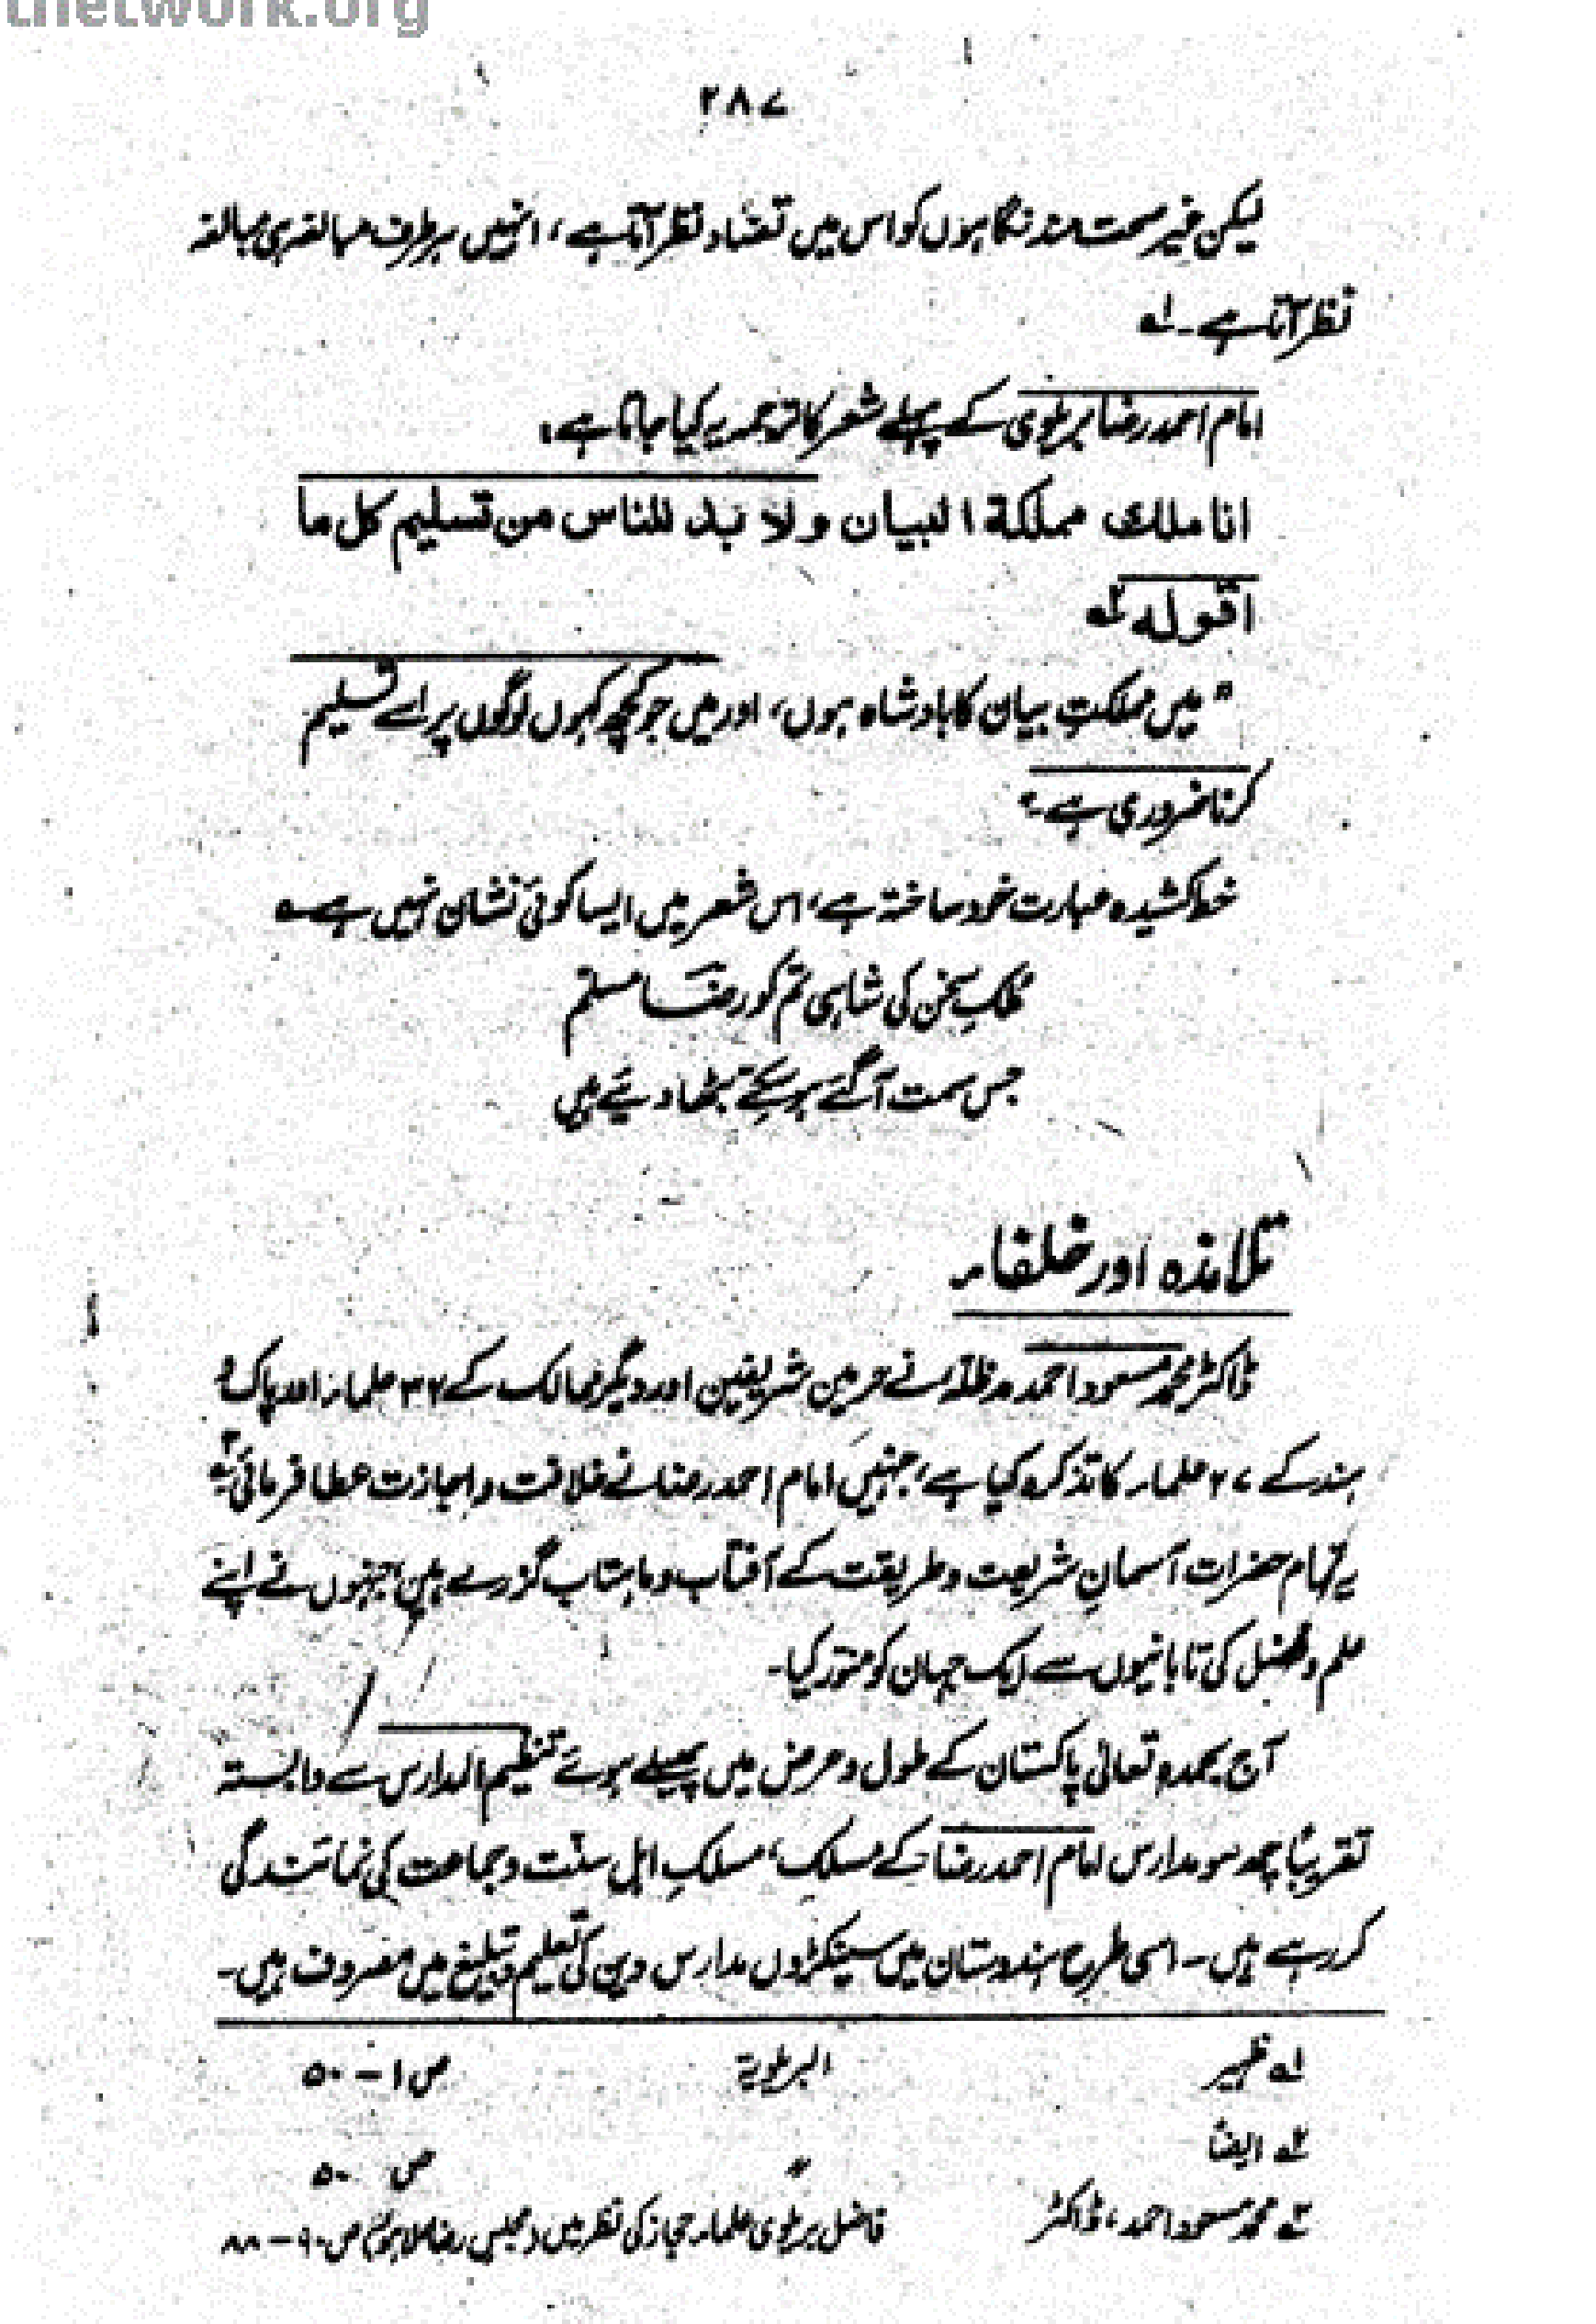 thetwork.org
۲۸۷
لیکن غیر صحت مند نگاہوں کو اس میں تضاد نظر آتا ہے، انہیں ہر طرف مبالغہ ہی مبالغہ
نظر آتا ہے۔ لہ
امام احمد رضا بریلوی کے پہلے شعر کا ترجمہ یہ کیا جاتا ہے:
انا ملك مملكة البيان ولا بد للناس من تسليم كل ما
اقوله ٢ه
"میں مملکتِ بیان کا بادشاہ ہوں، اور میں جو کچھ کہوں لوگوں پر اسے تسلیم
کرنا ضروری ہے۔"
خط کشیدہ عبارت خود ساختہ ہے، اس شعر میں ایسا کوئی نشان نہیں ہے ؎
ملکِ سخن کی شاہی تم کو رضا مسلّم
جس سمت آگئے ہو سکّے بٹھا دیئے ہیں
تلامذہ اور خلفاء
ڈاکٹر محمد مسعود احمد مدظلہ نے حرمین شریفین اور دیگر ممالک کے ۳۶ علماء اور پاک و
ہند کے ۲۷ علماء کا تذکرہ کیا ہے، جنہیں امام احمد رضا نے خلافت و اجازت عطا فرمائی ۳ه
یہ تمام حضرات آسمانِ شریعت و طریقت کے آفتاب و ماہتاب گزرے ہیں، جنہوں نے اپنے
علم و فضل کی تابانیوں سے ایک جہان کو منوّر کیا۔
آج بحمدہ تعالٰی پاکستان کے طول و عرض میں پھیلے ہوئے تنظیم المدارس سے وابستہ
تقریباً چھ سو مدارس امام احمد رضا کے مسلک، مسلکِ اہل سنّت و جماعت کی نمائندگی
کر رہے ہیں۔ اسی طرح ہندوستان میں سینکڑوں مدارس دین کی تعلیم و تبلیغ میں مصروف ہیں۔
لہ ظہیر البریلویۃ ص ۱ - ۵۰
۲ه ایضاً " ص ۵۰
۳ه محمد مسعود احمد، ڈاکٹر فاضل بریلوی علماء حجاز کی نظر میں (مجلس رضا لاہور) ص ۹۰-۸۸